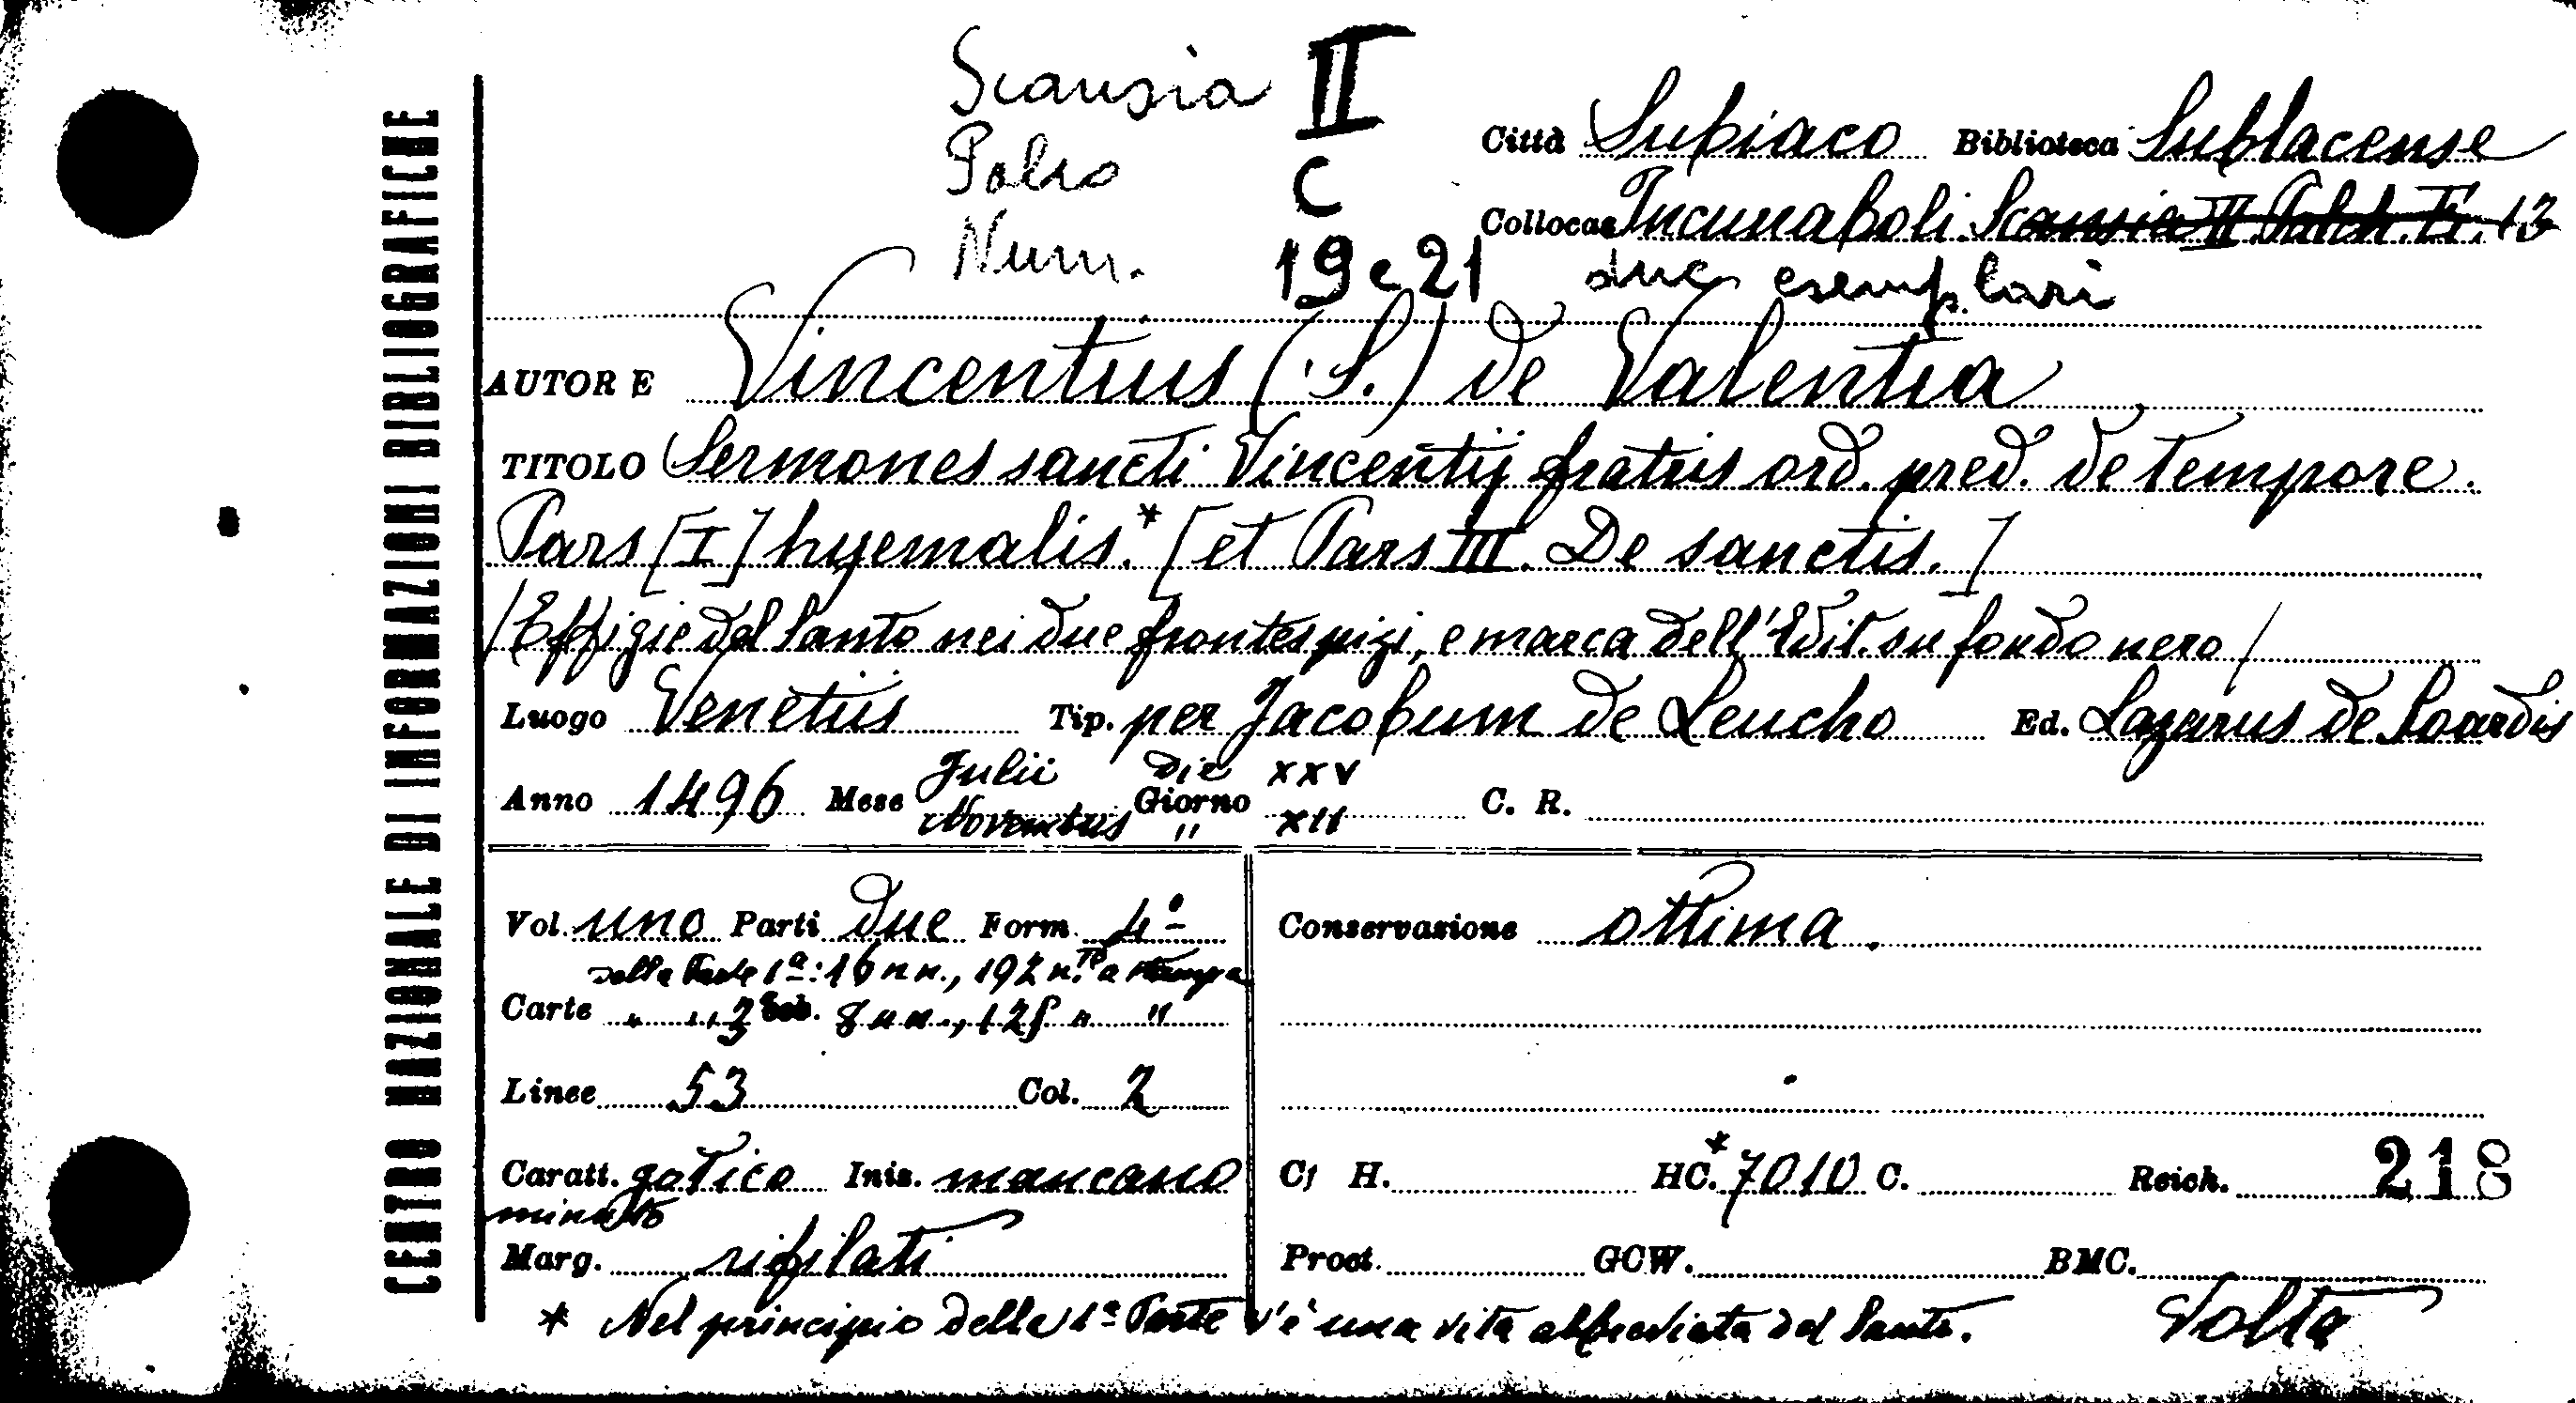 CENTRO NAZIONALE DI INFORMAZIONI BIBLIOGRAFICHE
Scansia II
Palco C
Num. 19 e 21 due esemplari
Città Subiaco Biblioteca Sublacense
Collocaz Incunaboli Scansia II Palch. II. 13
AUTORE Vincentius (S.) de Valentia
TITOLO Sermones sancti Vincentij fratris ord. pred. de tempore.
Pars [I] hyemalis.* [et Pars III. De sanctis.]
/Effigie del Santo nei due frontespizi, e marca dell'Edit. su fondo nero/
Luogo Venetiis Tip. per Jacobum de Leucho Ed. Lazarus de Soardis
Anno 1496 Mese Julii die Giorno XXV C. R.
Novembris " XII
Vol. uno Parti due Form. 4° Conservazione ottima.
della Parte 1ª: 16 nn., 192 n.te a stampa
Carte " " 3 8 nn., 125 " "
Linee 53 Col. 2
Caratt. gotico Iniz. mancano Cf H. HC. *7010 C. Reich. 218
minuto
Marg. rifilati Proct. GCW. BMC.
* Nel principio della 1ª Parte v'è una vita abbreviata del Santo. Volta